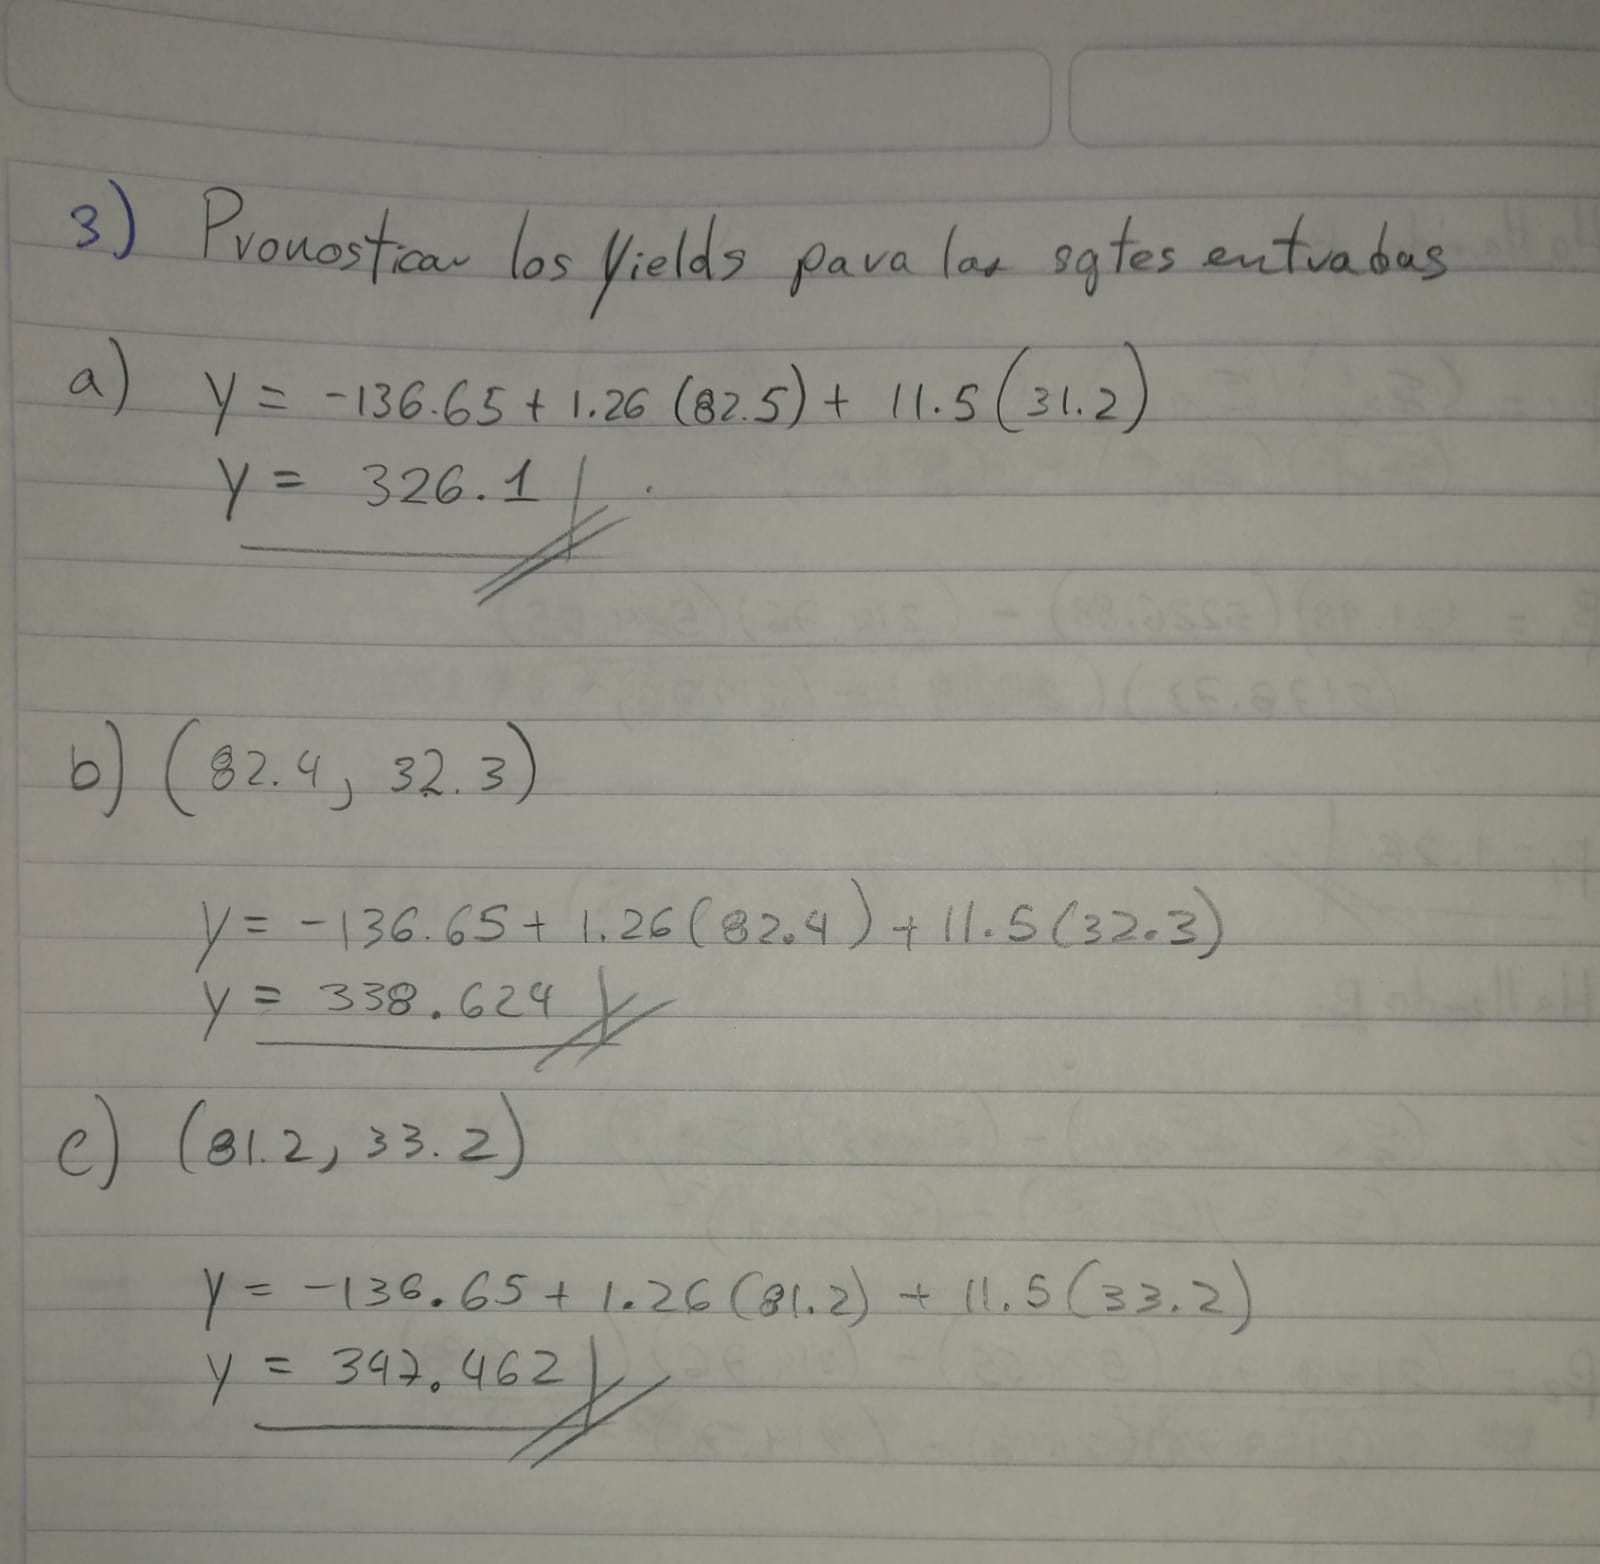 3) Pronosticar los Yields para las sgtes entradas
a) y = -136.65 + 1.26 (82.5) + 11.5 (31.2)
y = 326.1
b) (82.4, 32.3)
y = -136.65 + 1.26 (82.4) + 11.5 (32.3)
y = 338.624
c) (81.2, 33.2)
y = -136.65 + 1.26 (81.2) + 11.5 (33.2)
y = 347.462